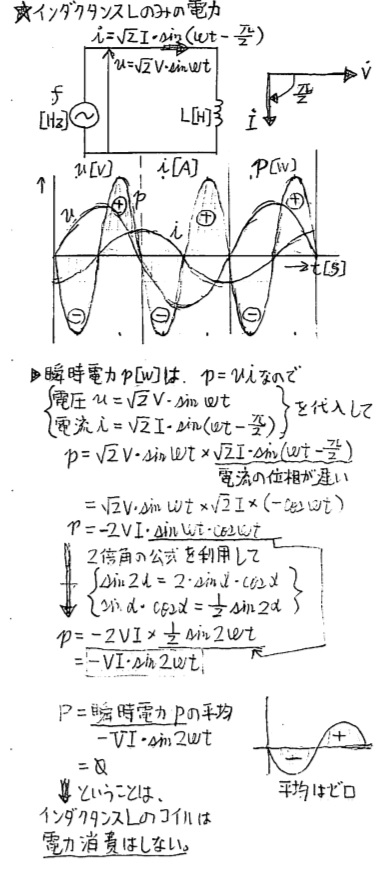 ☆インダクタンスLのみの電力
i=√2I・sin(ωt-π/2)
u=√2V・sinωt
f
[Hz]
L[H]
V̇
π/2
İ
u[V] i[A] p[W]
u
p
i
+ + +
- - -
→t[s]
▶瞬時電力p[W]は、p=uiなので
{電圧u=√2V・sinωt
電流i=√2I・sin(ωt-π/2)}を代入して
p=√2V・sinωt×√2I・sin(ωt-π/2)
電流の位相が遅い
=√2V・sinωt×√2I×(-cosωt)
p=-2VI・sinωt・cosωt
2倍角の公式を利用して
{sin2α=2・sinα・cosα
sinα・cosα=1/2sin2α}
p=-2VI×1/2sin2ωt
=-VI・sin2ωt
P=瞬時電力pの平均
-VI・sin2ωt
=0
+
-
平均はゼロ
⇓ということは、
インダクタンスLのコイルは
電力消費はしない。